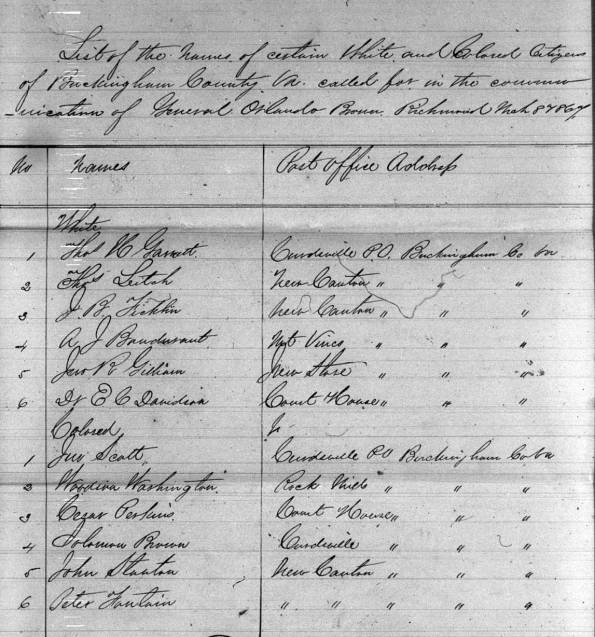 List of the Names of certain White and Colored Citizens
of Buckingham County Va. called for in the commu
-nication of General Orlando Brown Richmond Mch 8th 1867
No Names Post Office Address
White
1 Thos H Garrett Curdsville P.O. Buckingham Co Va
2 Thos Leitch New Canton " " "
3 J B Ficklin New Canton " " "
4 A J Bondurant Mt Vinco " "
5 Jno R Gilliam New Store " " "
6 Dr E C Davidson Court House " " "
Colored
1 Jno Scott, Curdsville PO Buckingham Co Va
2 Woodson Washington Rock Mills " " "
3 Cezar Perkins Court House " " "
4 Solomon Brown Curdsville " " "
5 John Stanton New Canton " " "
6 Peter Fountain " " " " "